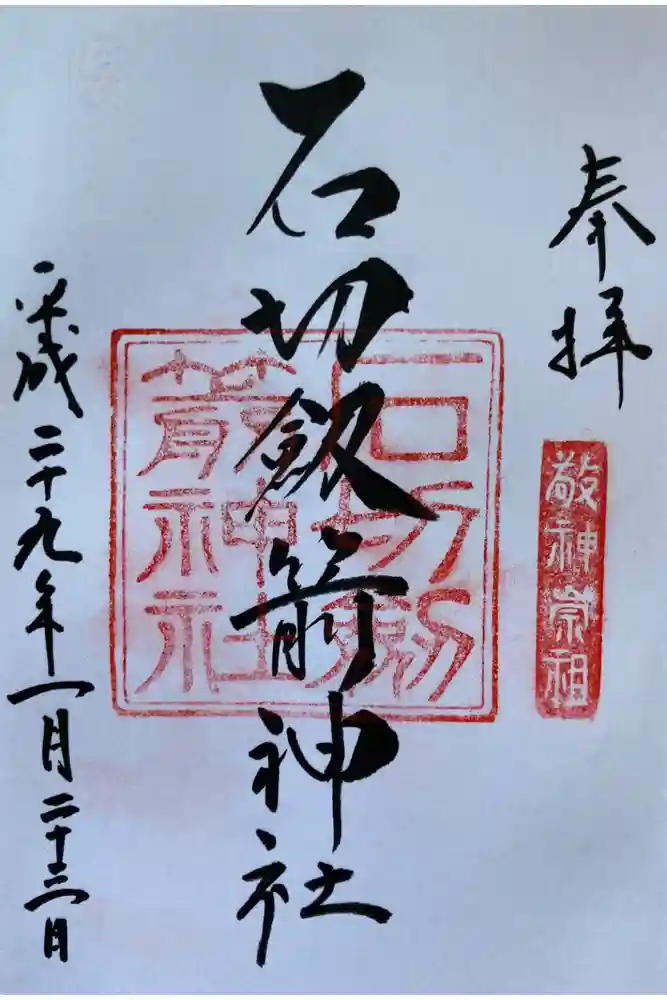 奉拝
敬神崇祖
石切釼箭神社
石切劔
箭神社
平成二十九年一月二十三日